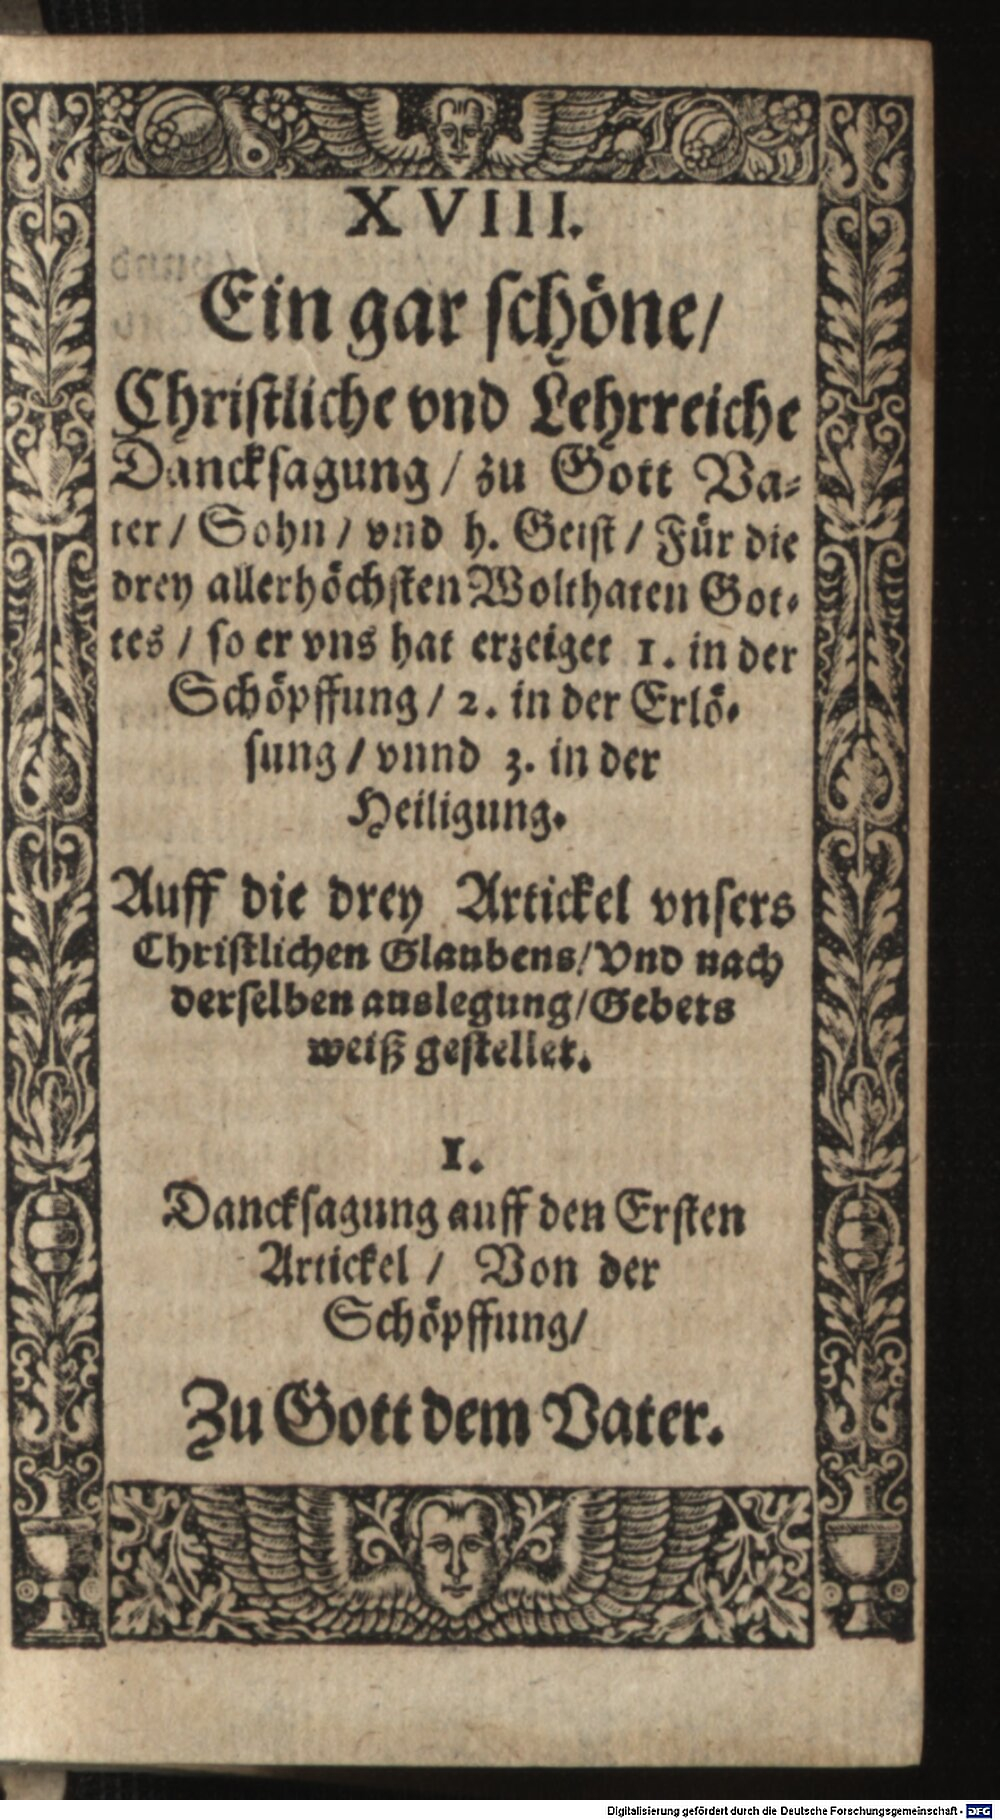 XVIII.
Ein gar schöne/
Christliche vnd Lehrreiche
Dancksagung / zu Gott Va-
ter / Sohn / vnd h. Geist / Für die
drey allerhöchsten Wolthaten Got-
tes / so er vns hat erzeiget 1. in der
Schöpffung / 2. in der Erlö-
sung / vnnd 3. in der
Heiligung.
Auff die drey Artickel vnsers
Christlichen Glaubens/ Vnd nach
derselben auslegung/Gebets
weiß gestellet.
1.
Dancksagung auff den Ersten
Artickel / Von der
Schöpffung/
Zu Gott dem Vater.
Digitalisierung gefördert durch die Deutsche Forschungsgemeinschaft - DFG